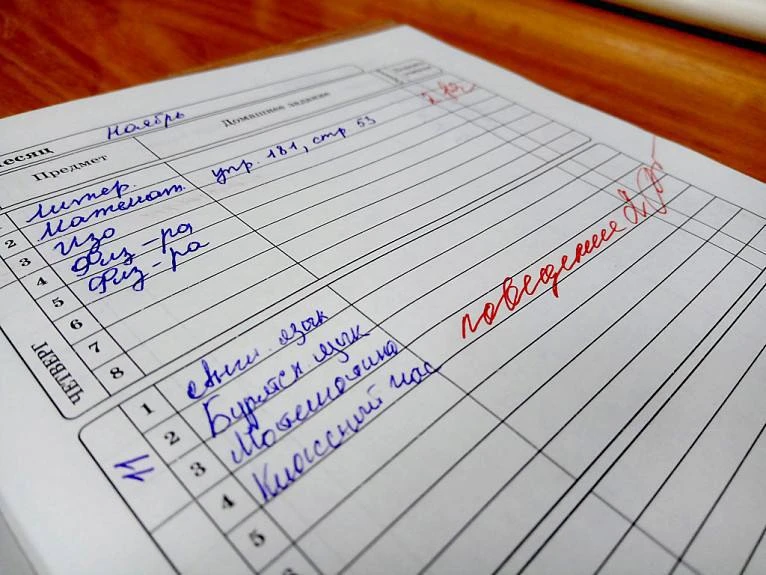 месяц ноябрь
Предмет Домашнее задание
1 Литер.
2 Математ. упр. 181, стр 53 2
3 Изо
4 Физ-ра
5 Физ-ра
6
7
8
ЧЕТВЕРГ
1 Англ. язык
2 Бурятск. язык
3 Математика
4 Классный час
5
11
поведение 2